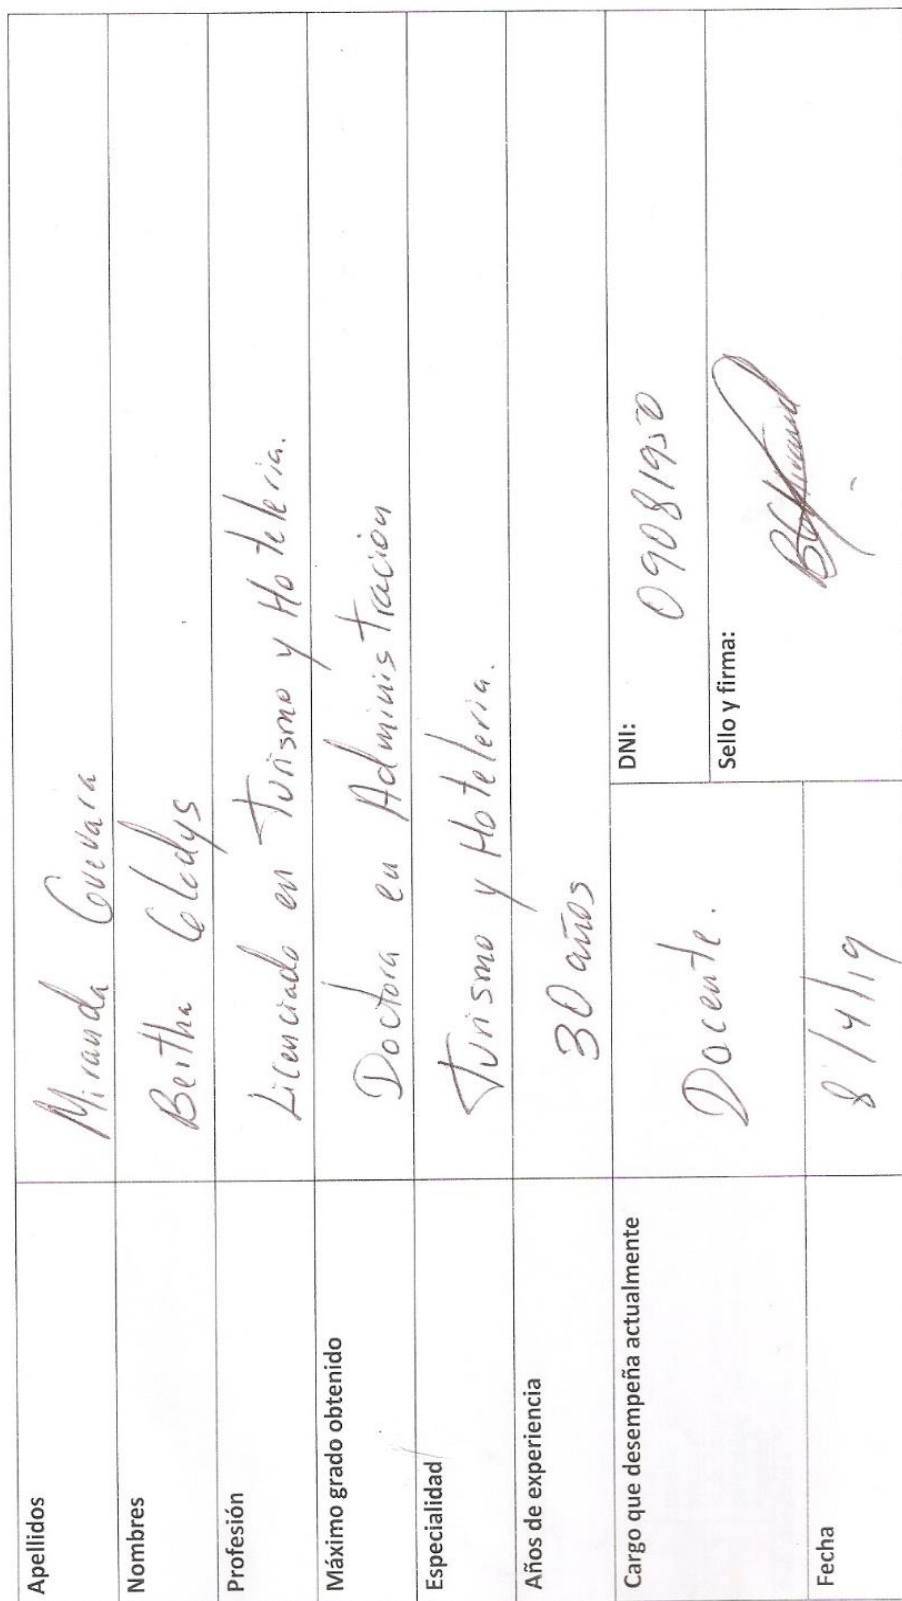 Apellidos Miranda Guevara
Nombres Bertha Gladys
Profesión Licenciado en Turismo y Hoteleria.
Máximo grado obtenido Doctora en Administracion
Especialidad Turismo y Hoteleria.
Años de experiencia 30 años
Cargo que desempeña actualmente Docente. DNI: 09081950
Sello y firma:
Fecha 8/4/19